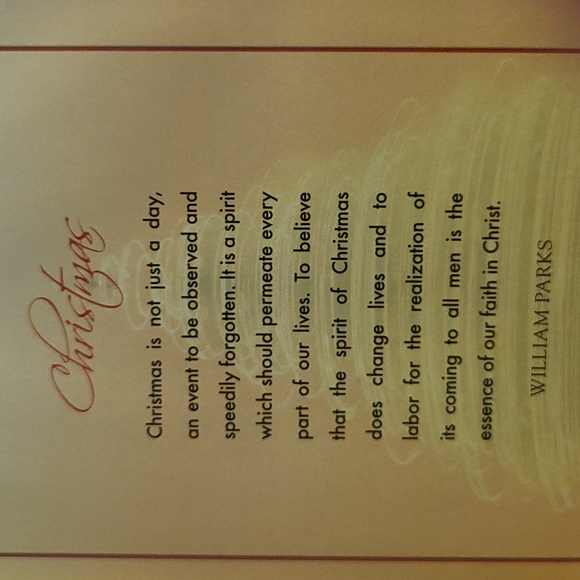 Christmas
Christmas is not just a day,
an event to be observed and
speedily forgotten. It is a spirit
which should permeate every
part of our lives. To believe
that the spirit of Christmas
does change lives and to
labor for the realization of
its coming to all men is the
essence of our faith in Christ.
WILLIAM PARKS